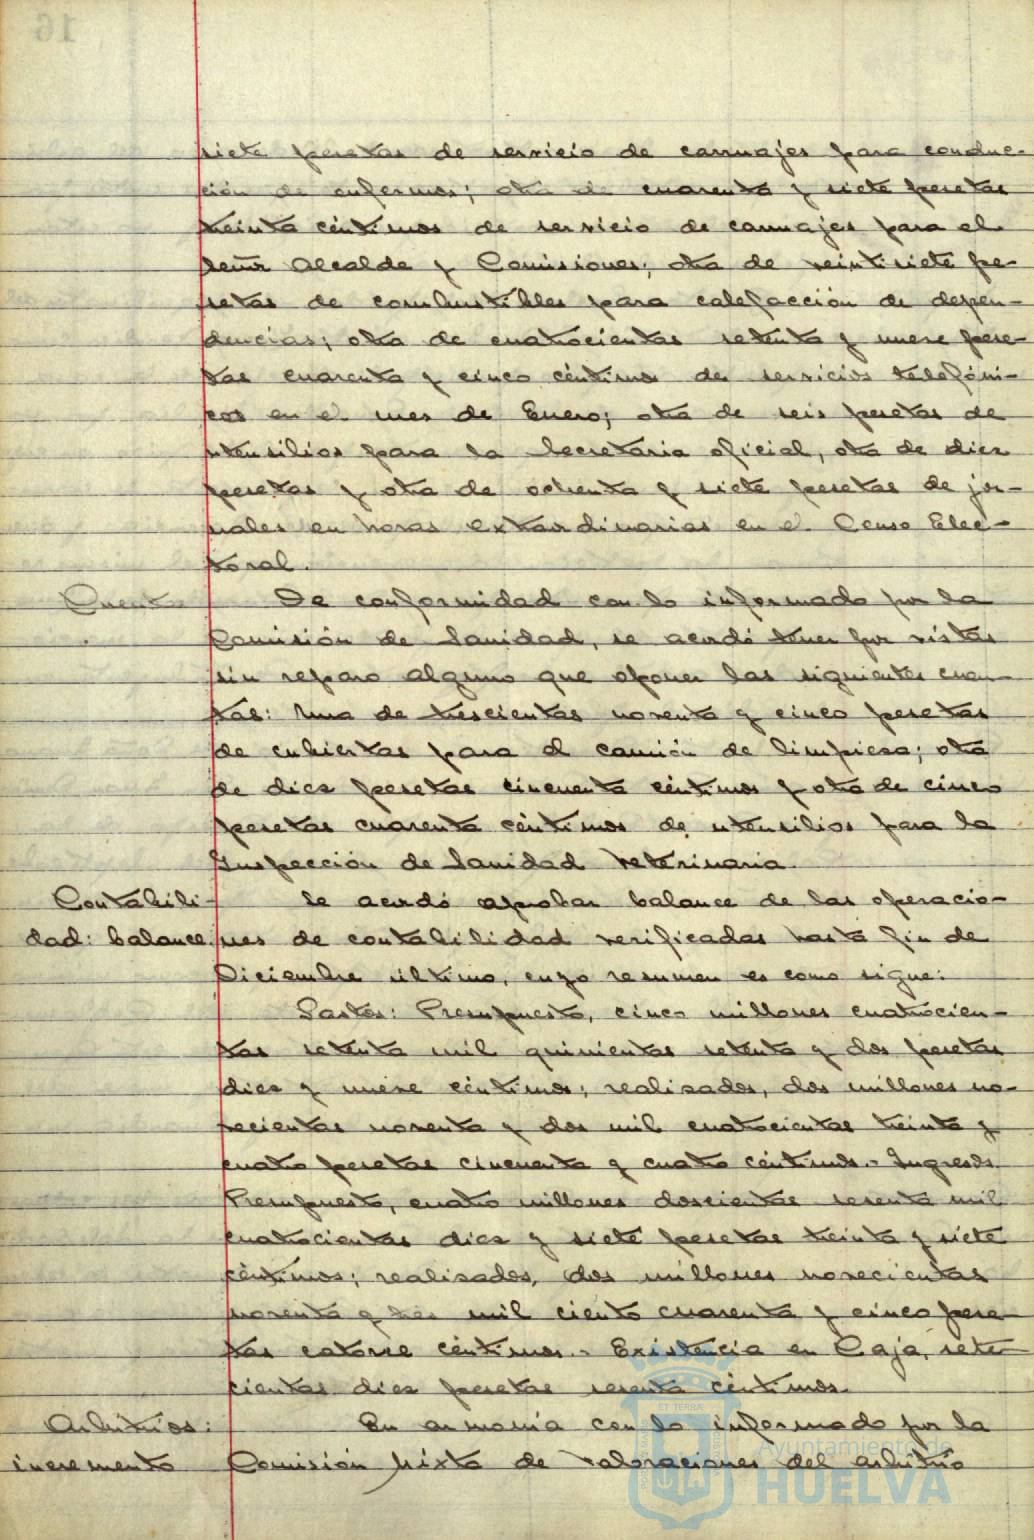 siete pesetas de servicio de carruajes para conduc-
ción de enfermos; otra de cuarenta y siete pesetas
treinta céntimos de servicio de carruajes para el
señor Alcalde y Comisiones; otra de veintisiete pe-
setas de combustibles para calefacción de depen-
dencias; otra de cuatrocientas setenta y nueve pese-
tas cuarenta y cinco céntimos de servicios telefóni-
cos en el mes de Enero; otra de seis pesetas de
utensilios para la Secretaria oficial, otra de diez
pesetas y otra de ochenta y siete pesetas de jor-
nales en horas extraordinarias en el Censo Elec-
toral.
Cuentas De conformidad con lo informado por la
Comisión de Sanidad, se acordó tener por vistas
sin reparo alguno que oponer las siguientes cuen-
tas: Una de trescientas noventa y cinco pesetas
de cubiertas para el camión de limpieza; otra
de diez pesetas cincuenta céntimos y otra de cinco
pesetas cuarenta céntimos de utensilios para la
Inspección de Sanidad Veterinaria.
Contabili- Se acordó aprobar balance de las operacio-
dad: balance. nes de contabilidad verificadas hasta fin de
Diciembre último, cuyo resumen es como sigue:
Gastos: Presupuesto, cinco millones cuatrocien-
tas setenta mil quinientas setenta y dos pesetas
diez y nueve céntimos; realizados, dos millones no-
vecientas noventa y dos mil cuatrocientas treinta y
cuatro pesetas cincuenta y cuatro céntimos.- Ingresos.
Presupuesto, cuatro millones doscientas sesenta mil
cuatrocientas diez y siete pesetas treinta y siete
céntimos; realizados, dos millones novecientas
noventa y tres mil ciento cuarenta y cinco pese-
tas catorce céntimos.- Existencia en Caja, sete-
cientas diez pesetas sesenta céntimos.
Arbitrios: En armonía con lo informado por la
incremento Comisión Mixta de Valoraciones del arbitrio
ET TERRÆ
Ayuntamiento de
HUELVA